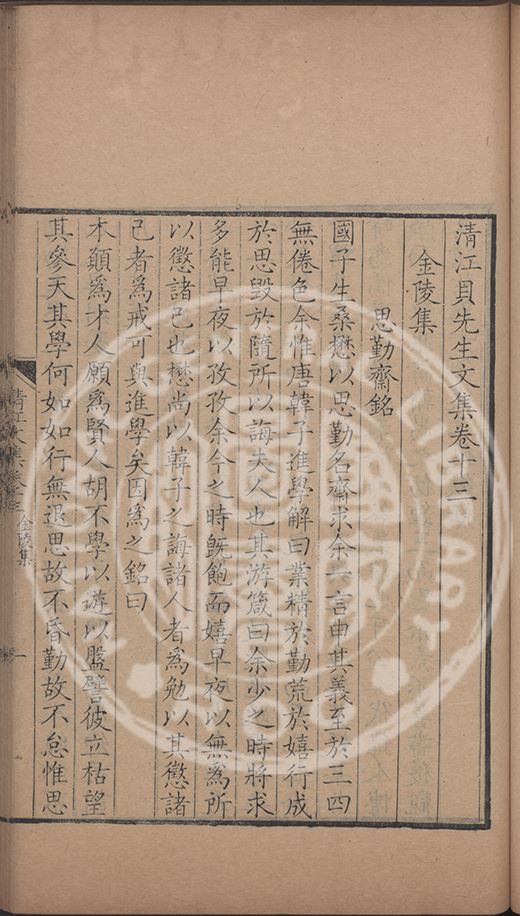 清江貝先生文集卷十三
金陵集
思勤齋銘
國子生桑懋以思勤名齋求余一言申其義至於三四
無倦色余惟唐韓子進學解曰業精於勤荒於嬉行成
於思毀於隨所以誨夫人也其游箴曰余少之時將求
多能早夜以孜孜余今之時旣飽而嬉早夜以無爲所
以懲諸己也懋尚以韓子之誨諸人者爲勉以其懲諸
己者爲戒可與進學矣因爲之銘曰
木顛爲才人願爲賢人胡不學以遊以盤譬彼立枯望
其參天其學何如如行無退思故不昏勤故不怠惟思
清江文集卷十三
金陵集
一